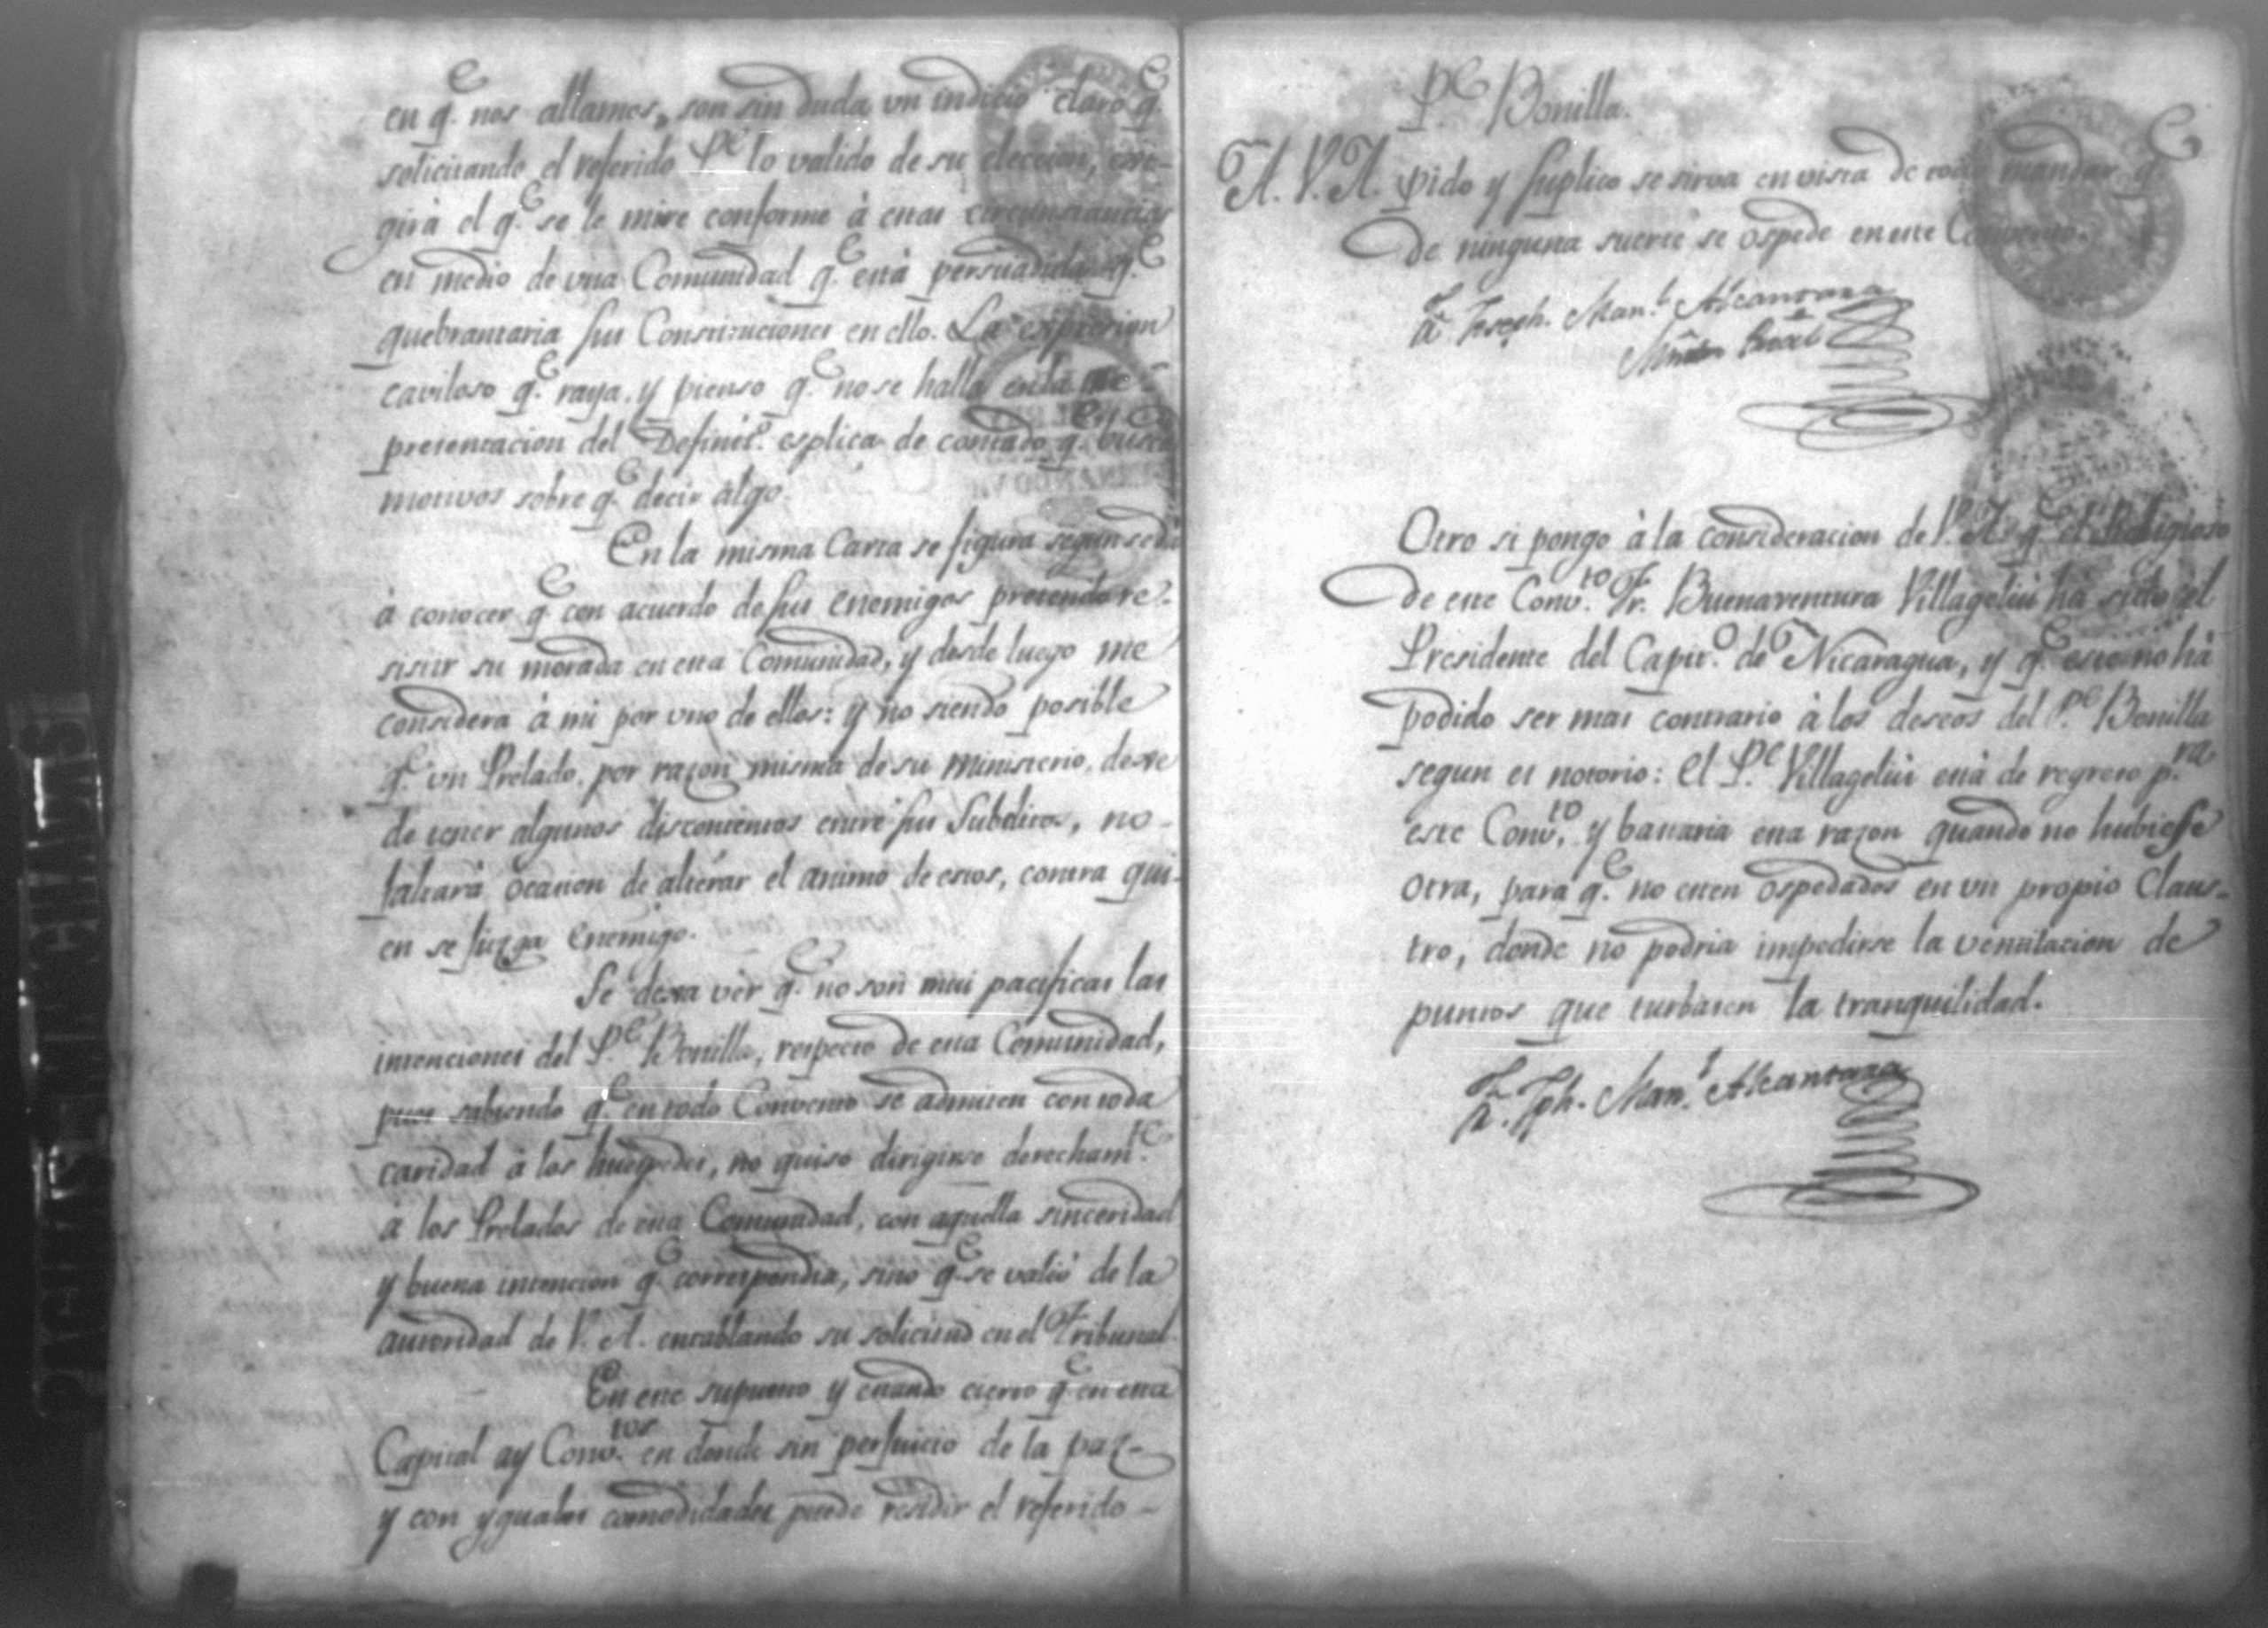 en q.e nos allamos, son sin duda vn indicio claro q.e
solicitando el referido P.e lo valido de su eleccion, exi-
girá el q.e se le mire conforme à estas circunstancias
en medio de vna Comunidad q.e està persuadida q.e
quebrantaria sus Constituciones en ello. La expresion
caviloso q.e raya, y pienso q.e no se halla en la re-
presentacion del Definit.o esplica de contado q.e busca
motivos sobre q.e decir algo.
En la misma Carta se figura segun se dà
à conocer q.e con acuerdo de sus enemigos pretendo re-
sistir su morada en esta Comunidad, y desde luego me
considera à mi por vno de ellos: y no siendo posible
q.e vn Prelado, por razon misma de su ministerio, dexe
de tener algunos discontentos entre sus Subditos, no
faltarà ocasion de alterar el animo de estos, contra qui-
en se juzga enemigo.
Se dexa vèr q.e no son mui pacificas las
intenciones del P.e Bonilla, respecto de esta Comunidad,
pues sabiendo q.e en todo Convento se admiten con toda
caridad à los huespedes, no quiso dirigirse derecham.te
à los Prelados de esta Comunidad, con aquella sinceridad
y buena intencion q.e correspondia, sino q.e se valió de la
autoridad de V. A. entablando su solicitud en el Tribunal.
En este supuesto y estando cierto q.e en esta
Capital ay Conv.tos en donde sin perjuicio de la paz
y con yguales comodidades puede residir el referido
P.e Bonilla.
A. V. A. pido y suplico se sirva en vista de todo mandar q.e
de ninguna suerte se ospede en este Convento.
Fr. Joseph. Man.l Alcantara
Mntro Provâl
Otro si pongo à la consideracion de V. A. q.e el Religioso
de este Conv.to Fr. Buenaventura Villageliú hà sido el
Presidente del Capit.o de Nicaragua, y q.e este no hà
podido ser mas contrario à los deseos del P.e Bonilla
segun es notorio: el P.e Villageliú està de regreso p.ra
este Conv.to y bastaria esta razon quando no hubiesse
otra, para q.e no esten ospedados en vn propio Claus-
tro, donde no podria impedirse la ventilacion de
puntos que turbasen la tranquilidad.
Fr. Jph. Man.l Alcantara